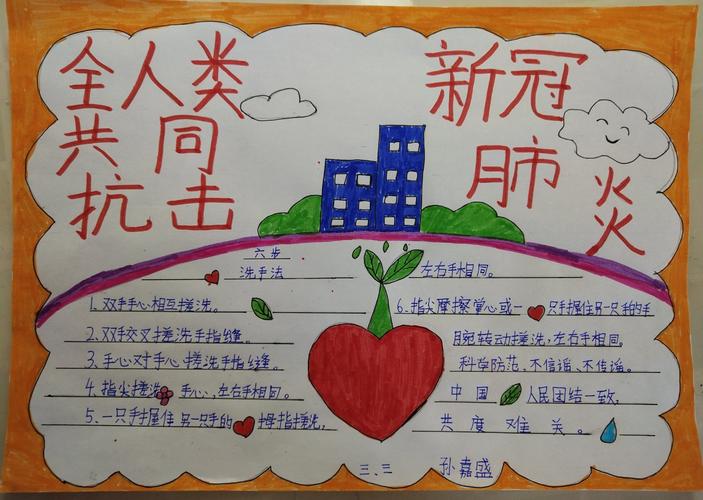 全人类
共同
抗击
新冠
肺
炎
六步
洗手法
1.双手手心相互搓洗。
2.双手交叉搓洗手指缝。
3、手心对手心搓洗手指缝。
4.指尖搓洗手心、左右手相同。
5、一只手握住另一只手的拇指搓洗,
左右手相同。
6.指尖摩擦掌心或一只手握住另一只手的手
腕转动搓洗,左右手相同,
科学防范、不信谣、不传谣。
中国人民团结一致,
共度难关。
三、三 孙嘉盛